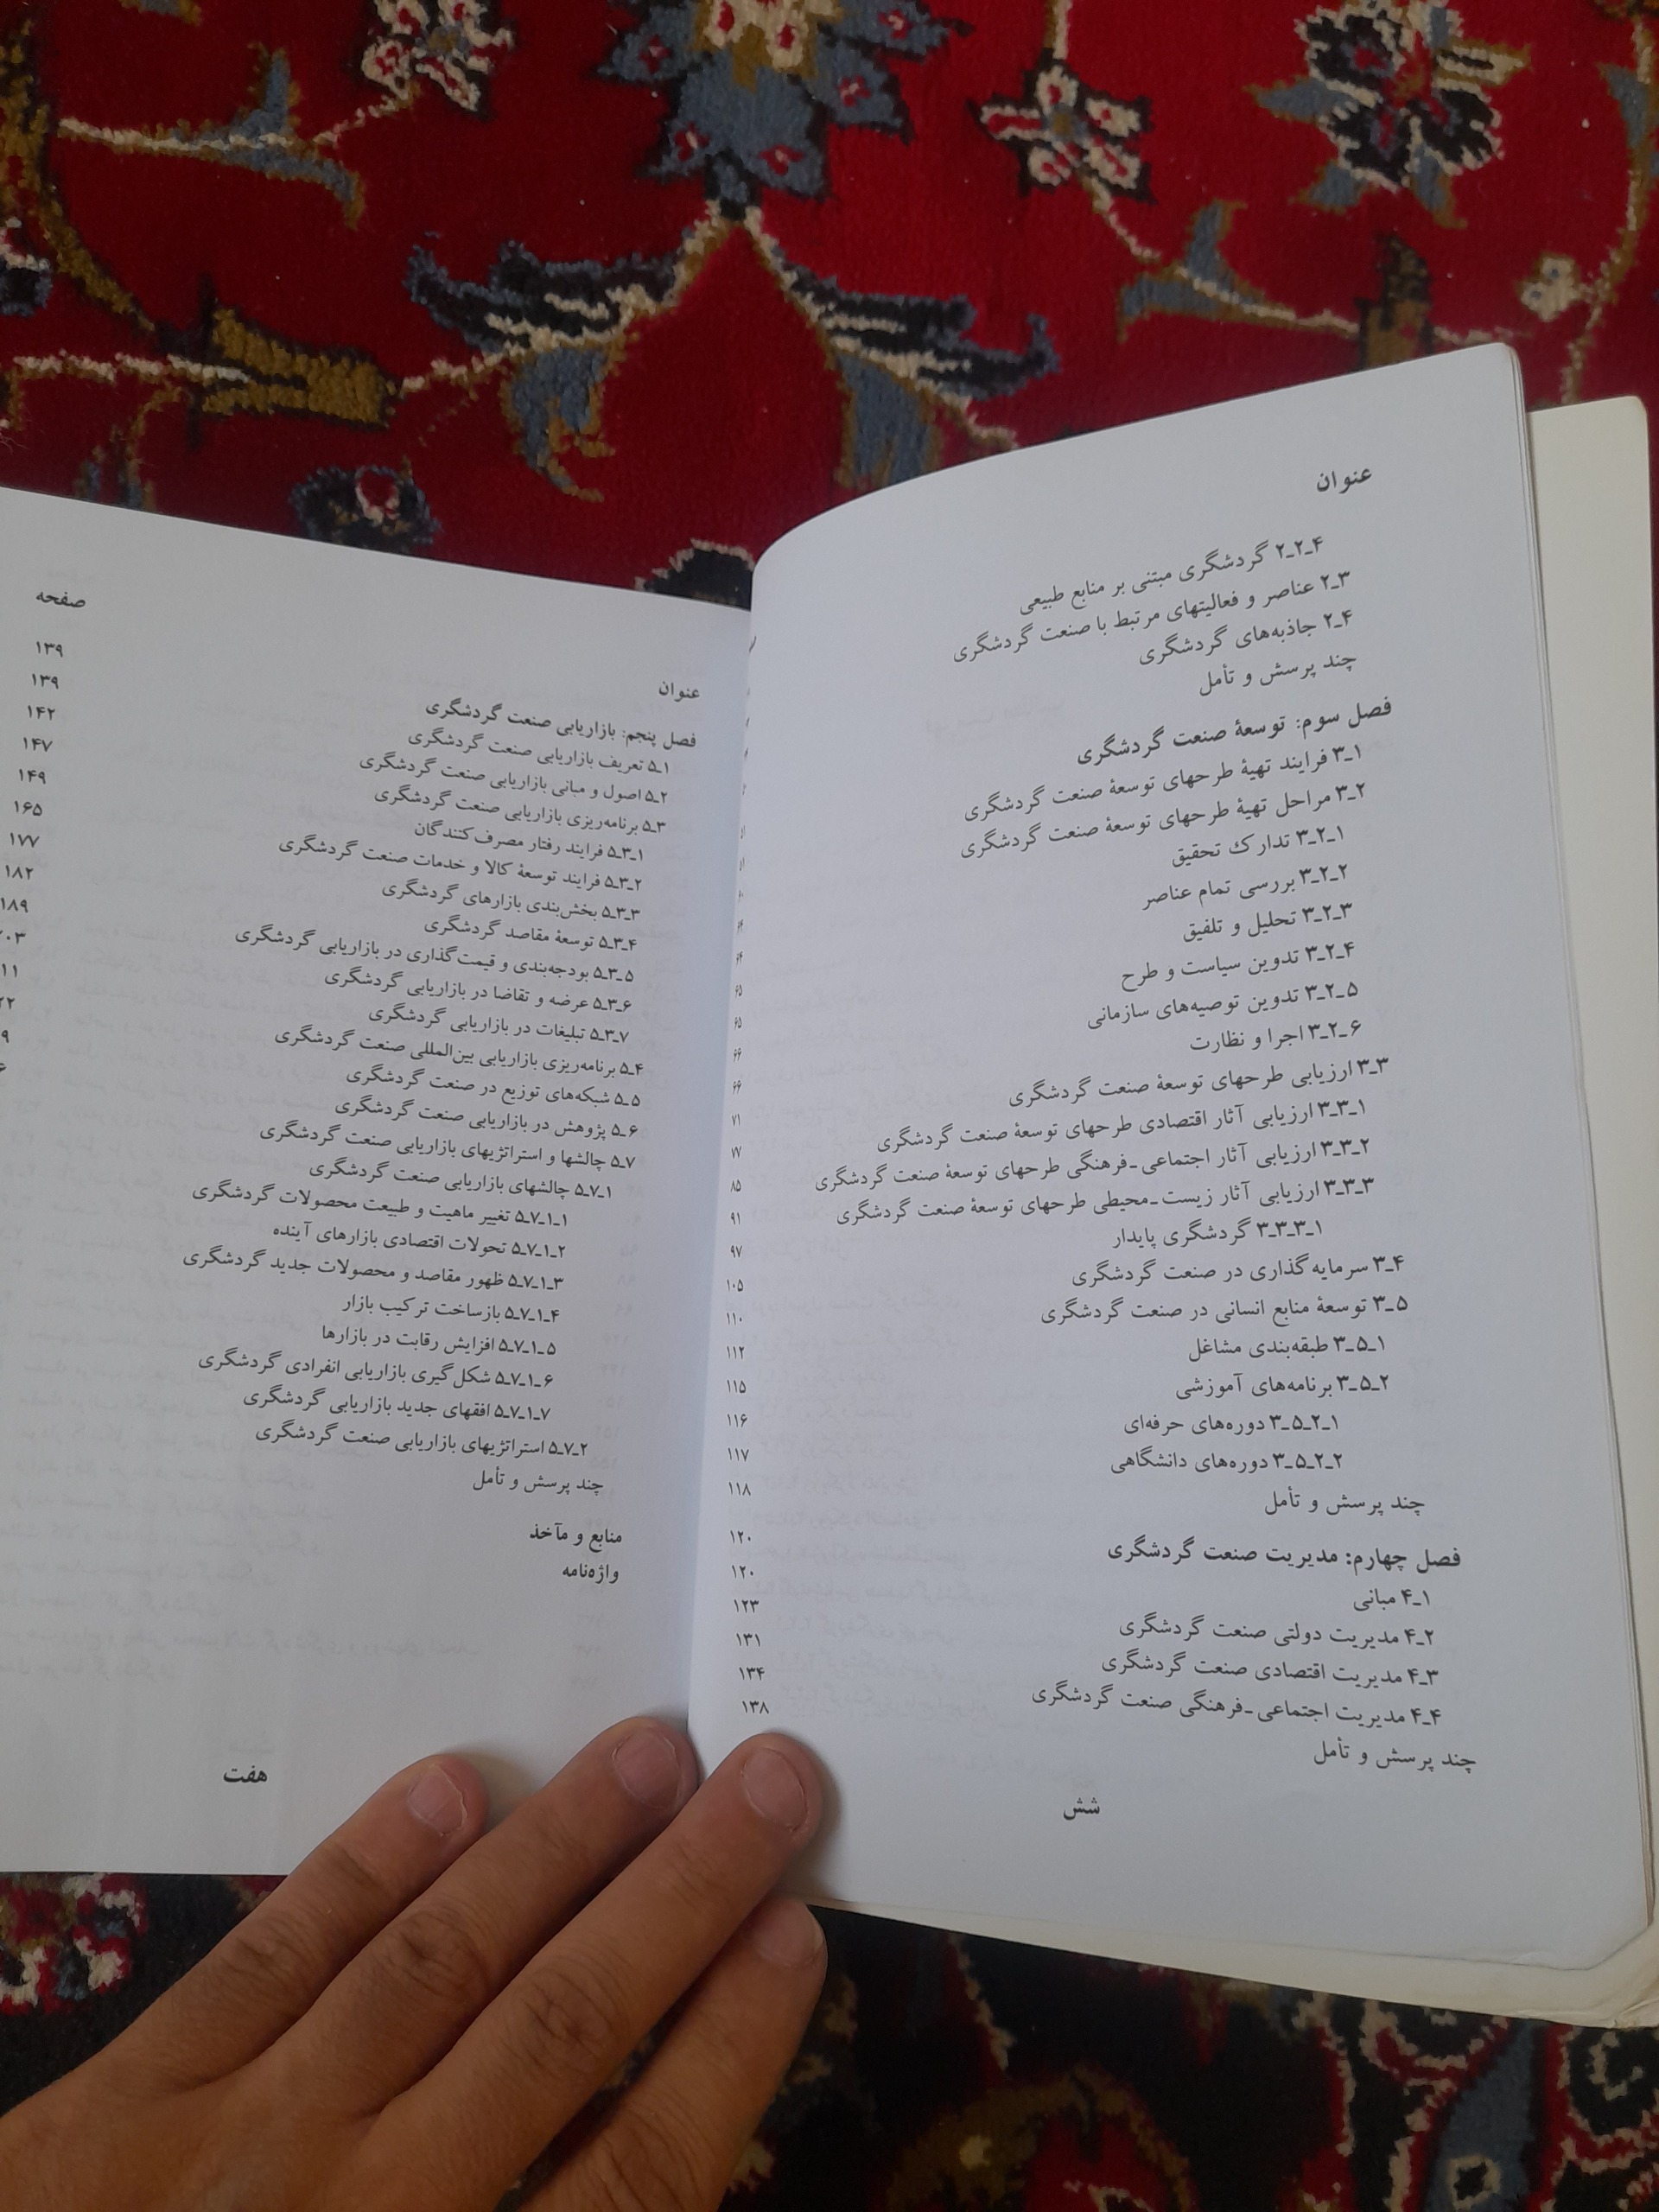 عنوان
۲ـ۲ـ۴ گردشگری مبتنی بر منابع طبیعی
۲ـ۳ عناصر و فعالیتهای مرتبط با صنعت گردشگری
۲ـ۴ جاذبه‌های گردشگری
چند پرسش و تأمل
فصل سوم: توسعهٔ صنعت گردشگری
۳ـ۱ فرایند تهیهٔ طرحهای توسعهٔ صنعت گردشگری
۳ـ۲ مراحل تهیهٔ طرحهای توسعهٔ صنعت گردشگری
۳ـ۲ـ۱ تدارک تحقیق ۶۴
۳ـ۲ـ۲ بررسی تمام عناصر ۶۴
۳ـ۲ـ۳ تحلیل و تلفیق ۶۵
۳ـ۲ـ۴ تدوین سیاست و طرح ۶۵
۳ـ۲ـ۵ تدوین توصیه‌های سازمانی ۶۶
۳ـ۲ـ۶ اجرا و نظارت ۶۶
۳ـ۳ ارزیابی طرحهای توسعهٔ صنعت گردشگری ۷۱
۳ـ۳ـ۱ ارزیابی آثار اقتصادی طرحهای توسعهٔ صنعت گردشگری ۷۷
۳ـ۳ـ۲ ارزیابی آثار اجتماعی ـ فرهنگی طرحهای توسعهٔ صنعت گردشگری ۸۵
۳ـ۳ـ۳ ارزیابی آثار زیست ـ محیطی طرحهای توسعهٔ صنعت گردشگری ۹۱
۳ـ۳ـ۳ـ۱ گردشگری پایدار ۹۷
۳ـ۴ سرمایه گذاری در صنعت گردشگری ۱۰۵
۳ـ۵ توسعهٔ منابع انسانی در صنعت گردشگری ۱۱۰
۳ـ۵ـ۱ طبقه‌بندی مشاغل ۱۱۲
۳ـ۵ـ۲ برنامه‌های آموزشی ۱۱۵
۳ـ۵ـ۲ـ۱ دوره‌های حرفه‌ای ۱۱۶
۳ـ۵ـ۲ـ۲ دوره‌های دانشگاهی ۱۱۷
چند پرسش و تأمل ۱۱۸
فصل چهارم: مدیریت صنعت گردشگری ۱۲۰
۴ـ۱ مبانی ۱۲۰
۴ـ۲ مدیریت دولتی صنعت گردشگری ۱۲۳
۴ـ۳ مدیریت اقتصادی صنعت گردشگری ۱۳۱
۴ـ۴ مدیریت اجتماعی ـ فرهنگی صنعت گردشگری ۱۳۴
چند پرسش و تأمل ۱۳۸
شش
عنوان صفحه
فصل پنجم: بازاریابی صنعت گردشگری ۱۳۹
۵ـ۱ تعریف بازاریابی صنعت گردشگری ۱۳۹
۵ـ۲ اصول و مبانی بازاریابی صنعت گردشگری ۱۴۲
۵ـ۳ برنامه‌ریزی بازاریابی صنعت گردشگری ۱۴۷
۵ـ۳ـ۱ فرایند رفتار مصرف‌کنندگان ۱۴۹
۵ـ۳ـ۲ فرایند توسعهٔ کالا و خدمات صنعت گردشگری ۱۶۵
۵ـ۳ـ۳ بخش‌بندی بازارهای گردشگری ۱۷۷
۵ـ۳ـ۴ توسعهٔ مقاصد گردشگری ۱۸۲
۵ـ۳ـ۵ بودجه‌بندی و قیمت‌گذاری در بازاریابی گردشگری ۱۸۹
۵ـ۳ـ۶ عرضه و تقاضا در بازاریابی گردشگری
۵ـ۳ـ۷ تبلیغات در بازاریابی گردشگری
۵ـ۴ برنامه‌ریزی بازاریابی بین‌المللی صنعت گردشگری
۵ـ۵ شبکه‌های توزیع در صنعت گردشگری
۵ـ۶ پژوهش در بازاریابی صنعت گردشگری
۵ـ۷ چالشها و استراتژیهای بازاریابی صنعت گردشگری
۵ـ۷ـ۱ چالشهای بازاریابی صنعت گردشگری
۵ـ۷ـ۱ـ۱ تغییر ماهیت و طبیعت محصولات گردشگری
۵ـ۷ـ۱ـ۲ تحولات اقتصادی بازارهای آینده
۵ـ۷ـ۱ـ۳ ظهور مقاصد و محصولات جدید گردشگری
۵ـ۷ـ۱ـ۴ بازساخت ترکیب بازار
۵ـ۷ـ۱ـ۵ افزایش رقابت در بازارها
۵ـ۷ـ۱ـ۶ شکل‌گیری بازاریابی انفرادی گردشگری
۵ـ۷ـ۱ـ۷ افقهای جدید بازاریابی گردشگری
۵ـ۷ـ۲ استراتژیهای بازاریابی صنعت گردشگری
چند پرسش و تأمل
منابع و مآخذ
واژه‌نامه
هفت